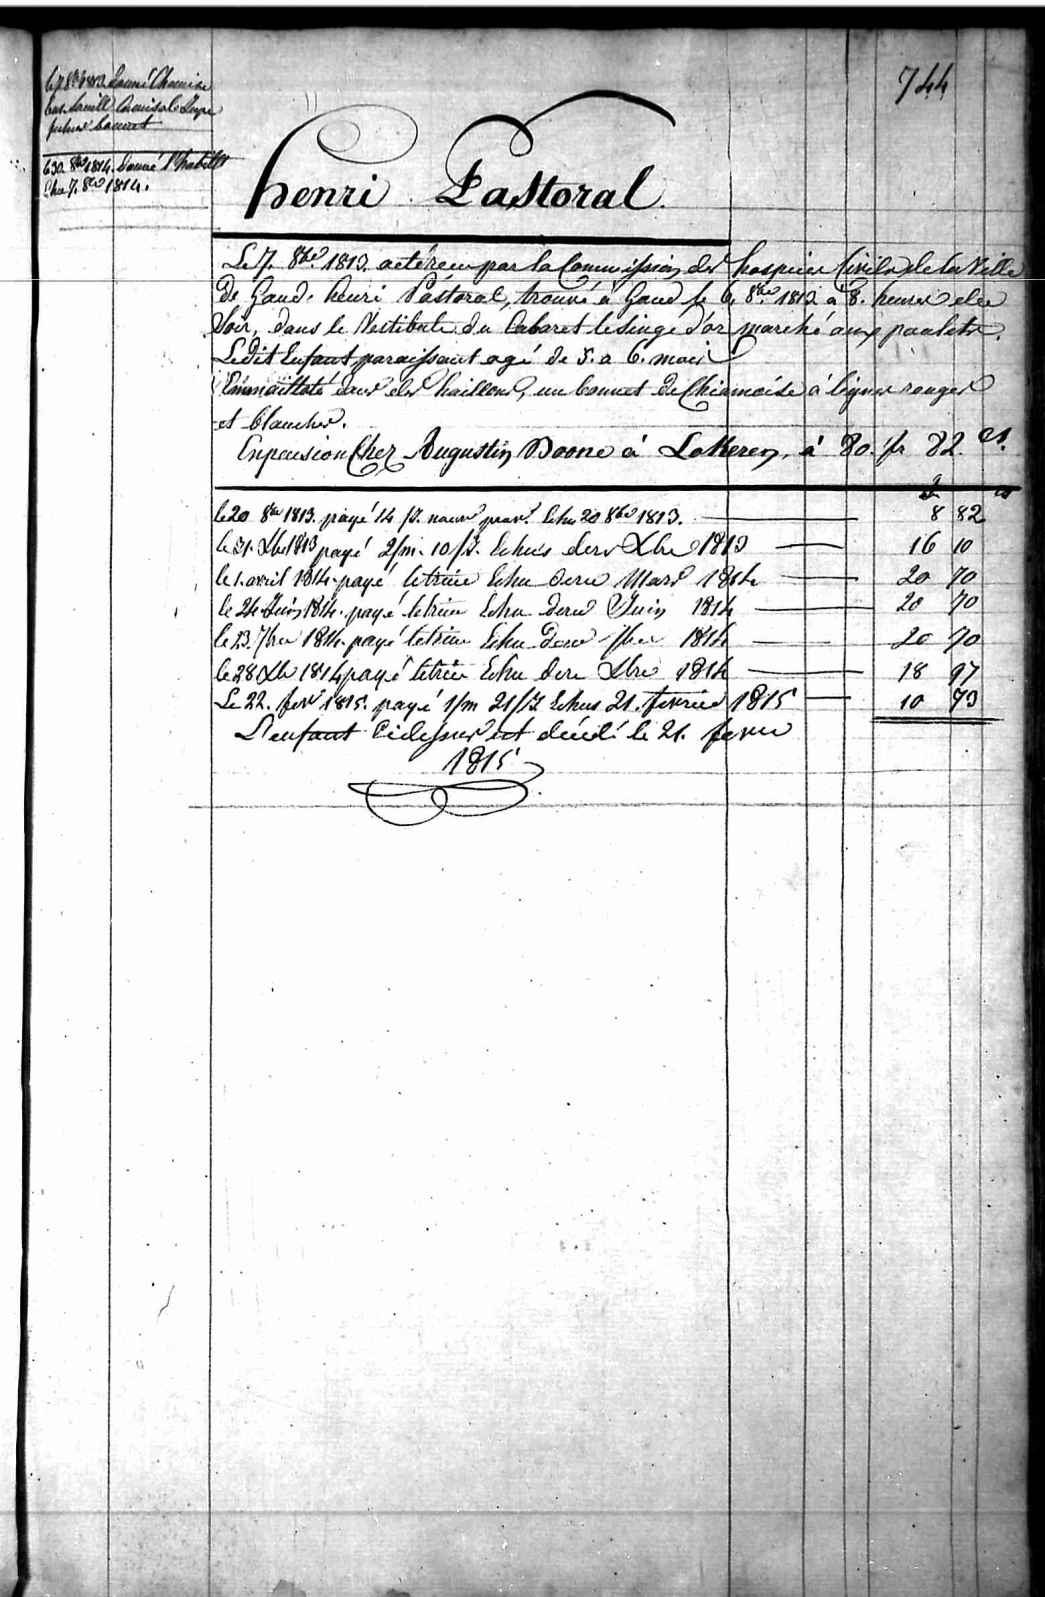 744
le 7 8bre 1813. Donné Chemise
bas. Camisole Linge
bonnet
le 30 8bre 1814. Donné l'habille
Echu 7. 8bre 1814.
henri Pastoral.
Le 7. 8bre 1813. a été reçu par la Commission des hospices Civils de la Ville
De Gand. henri Pastoral, trouvé à Gand le 6. 8bre 1813 à 8. heures du
Soir, dans le Vestibule du Cabaret le Singe d'or marché aux poulets.
Ledit Enfant paraissant agé de 5. a 6. mois
Emmaillotté dans des haillons, un bonnet de Chiamoise à lignes rouges
et blanches.
En pension Chez Augustin Boone à Lokeren, à 80. fr 82 cs.
fr cs
le 20 8bre 1813. payé 14 js. Echus 20 8bre 1813. 8 82
le 31. Xbre 1813 payé 2/m. 10/js. Echus dern Xbre 1813 16 10
le 1. avril 1814. payé le trim Echu dern Mars 1814 20 70
le 24 Juin 1814. payé le trim Echu dern Juin 1814 20 70
le 23. 7bre 1814. payé le trim Echu dern 7bre 1814 20 70
le 28 Xbre 1814 payé le trim Echu dern Xbre 1814 18 97
Le 22. fevr 1815. payé 1/m 21/js Echus 21. fevrier 1815 10 73
L'enfant Cidessus est décédé le 21. fevrier
1815